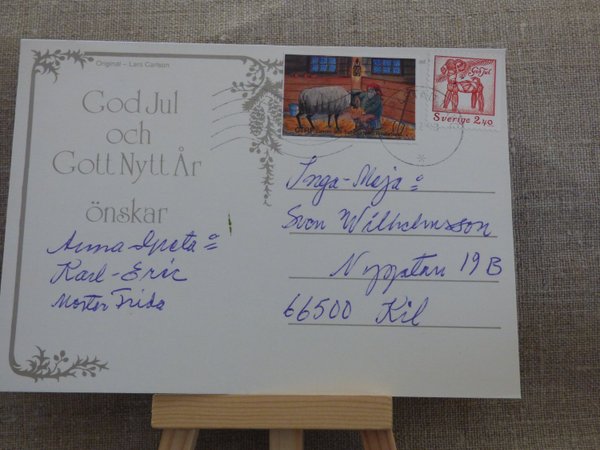 Original – Lars Carlson
God Jul
och
Gott Nytt År
önskar
Anna-Greta o
Karl-Eric
Moster Frida
God Jul
Sverige 2,40
Inga-Maja o
Sven Wilhelmsson
19 B
66500 Kil